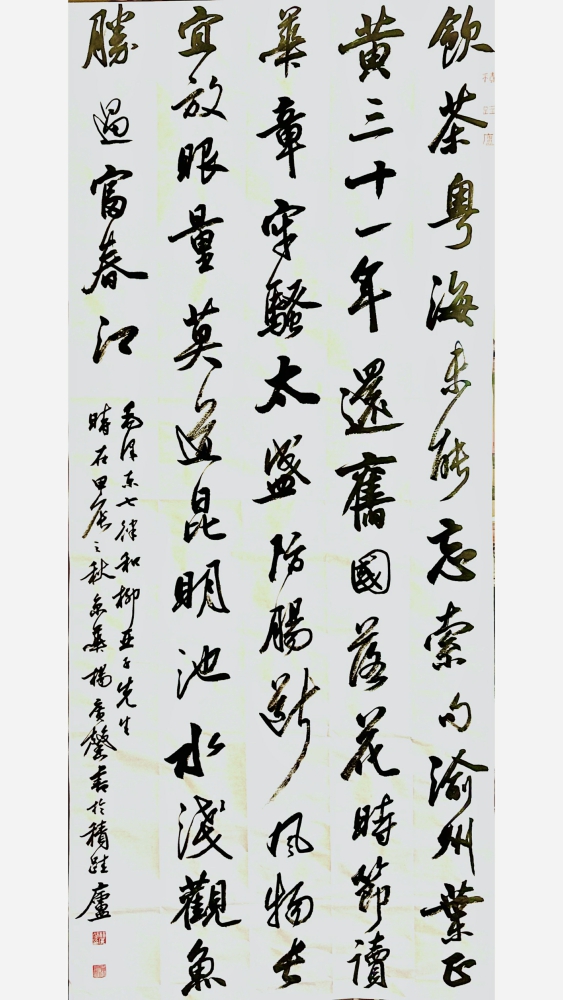 積跬廬
飲茶粵海未能忘索句渝州葉正
黄三十一年還舊國落花時節讀
華章牢騷太盛防腸斷風物長
宜放眼量莫道昆明池水淺觀魚
勝過富春江
毛澤东七律和柳亚子先生
時在甲辰之秋京華楊广馨書於積跬廬